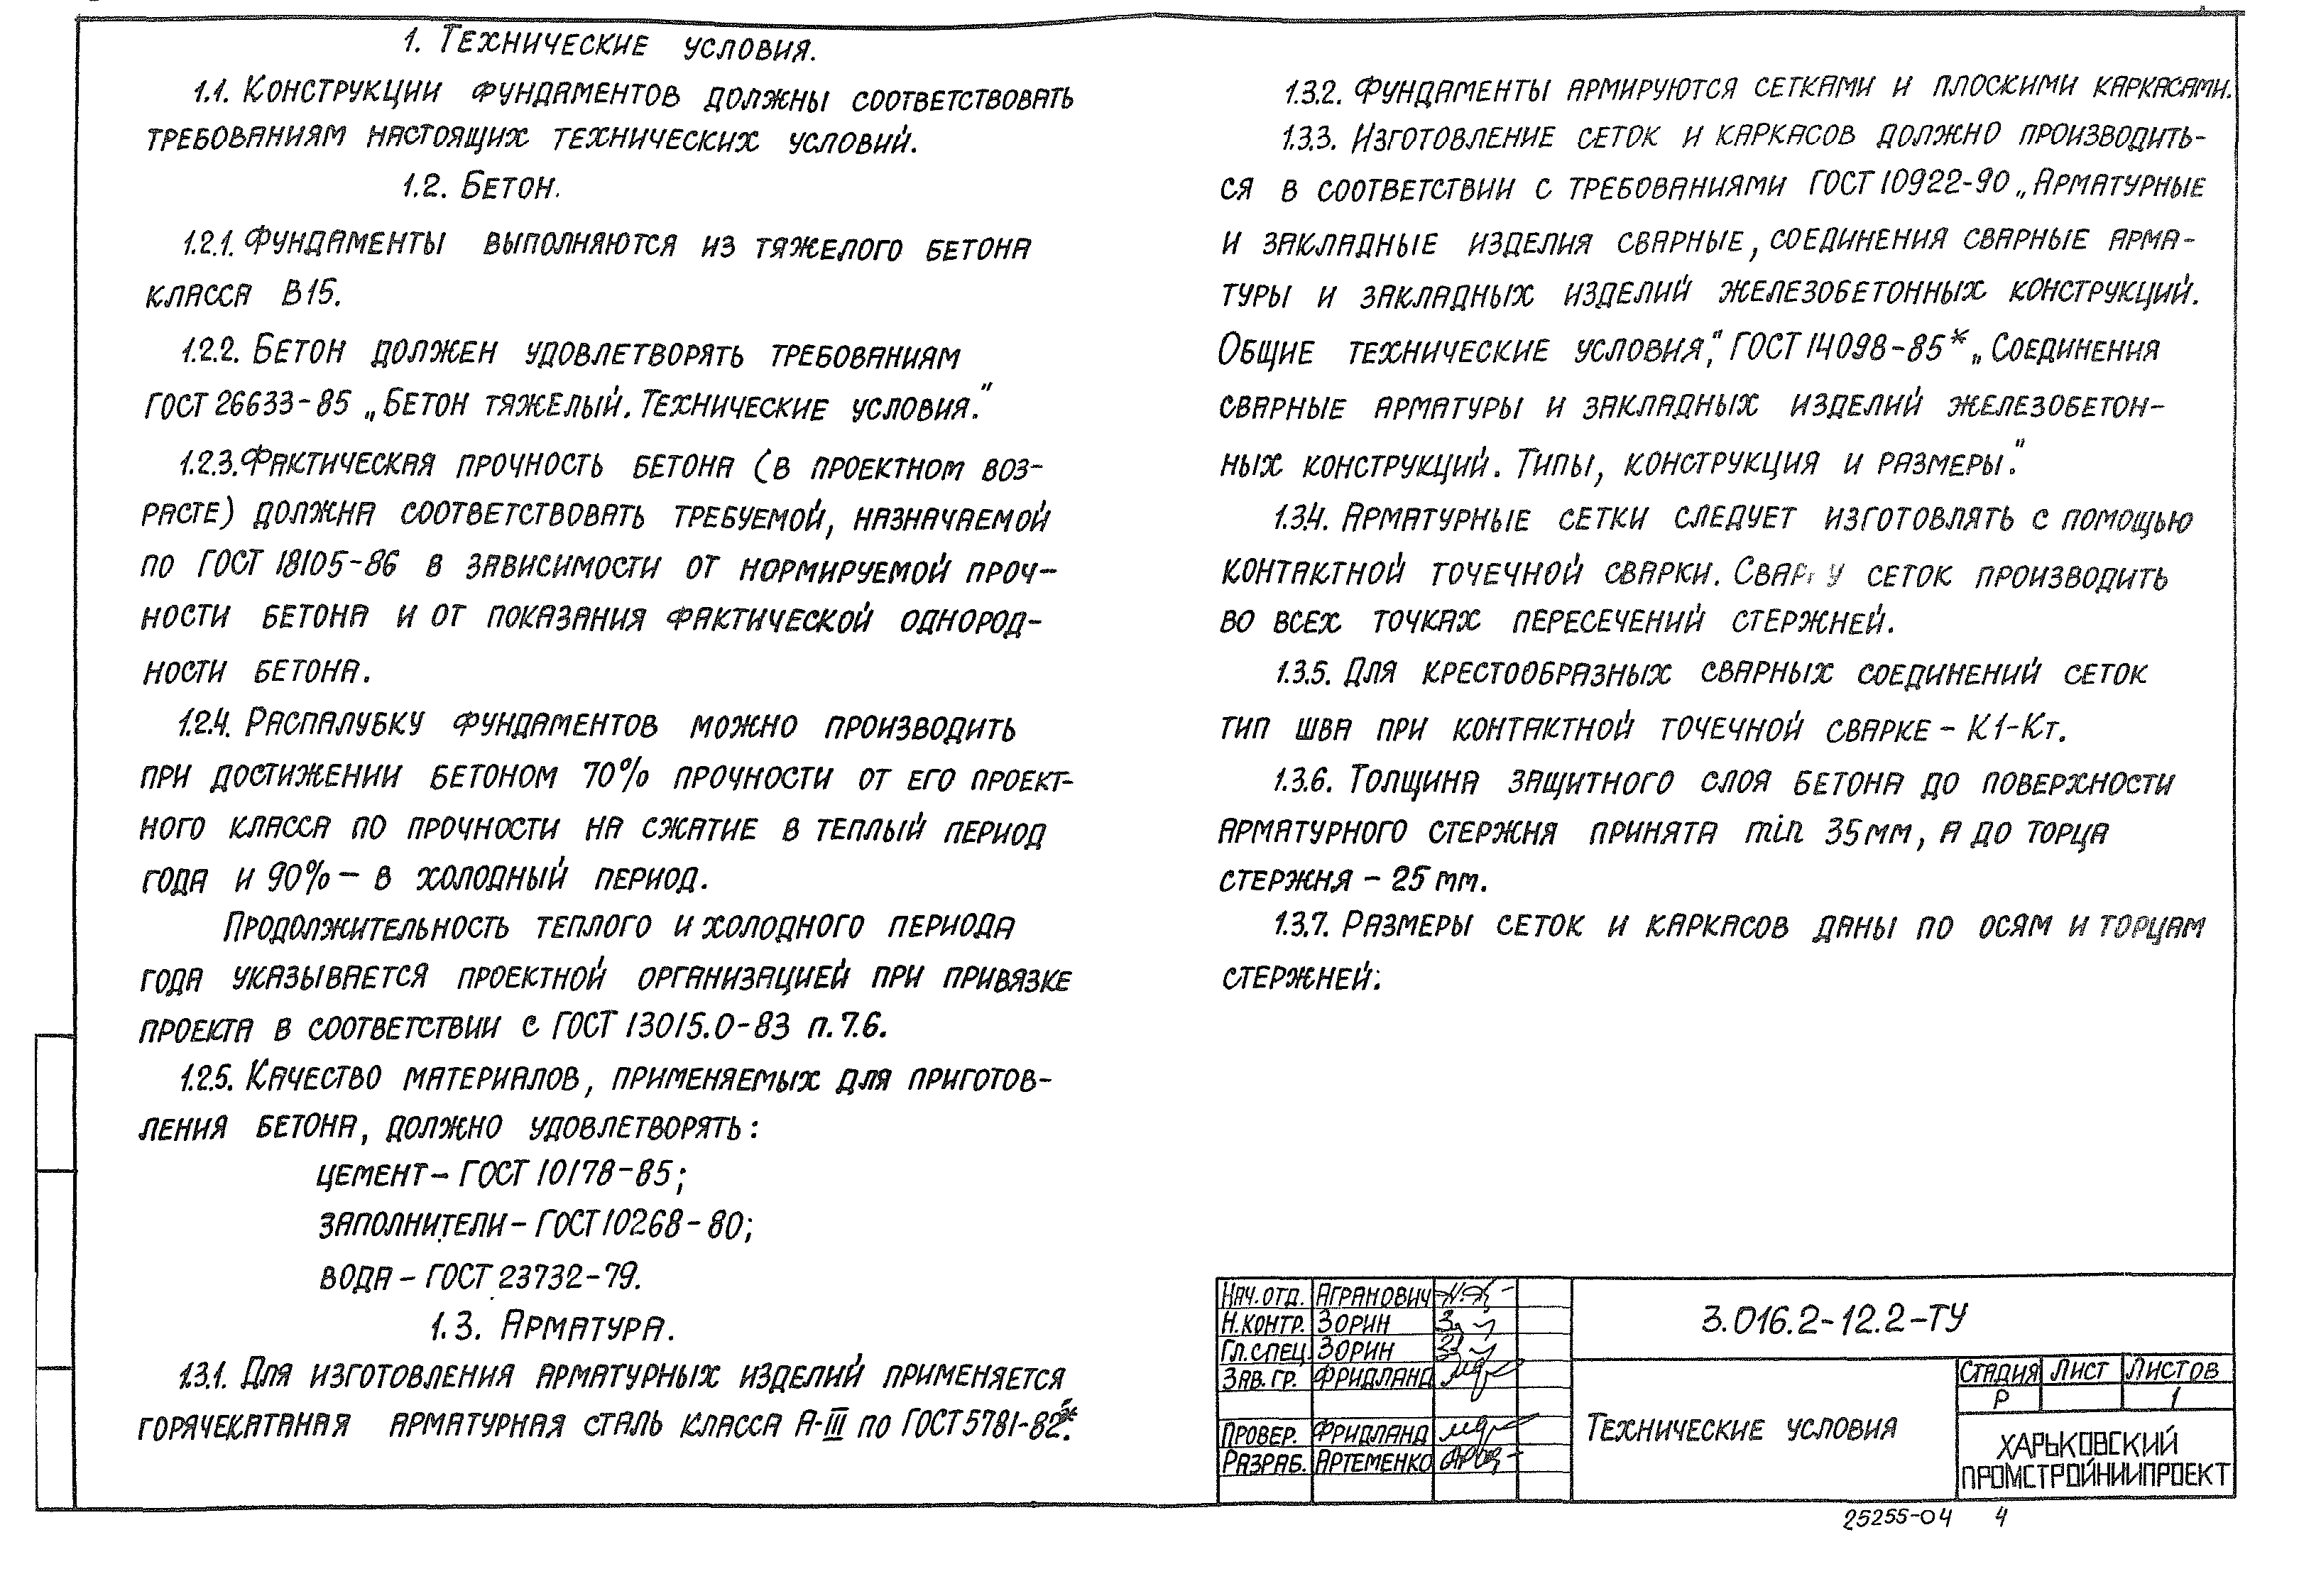 1. Технические условия.
1.1. Конструкции фундаментов должны соответствовать
требованиям настоящих технических условий.
1.2. Бетон.
1.2.1. Фундаменты выполняются из тяжелого бетона
класса В15.
1.2.2. Бетон должен удовлетворять требованиям
ГОСТ 26633-85 „Бетон тяжелый. Технические условия."
1.2.3. Фактическая прочность бетона (в проектном воз-
расте) должна соответствовать требуемой, назначаемой
по ГОСТ 18105-86 в зависимости от нормируемой проч-
ности бетона и от показания фактической однород-
ности бетона.
1.2.4. Распалубку фундаментов можно производить
при достижении бетоном 70% прочности от его проект-
ного класса по прочности на сжатие в теплый период
года и 90% – в холодный период.
Продолжительность теплого и холодного периода
года указывается проектной организацией при привязке
проекта в соответствии с ГОСТ 13015.0-83 п. 7.6.
1.2.5. Качество материалов, применяемых для приготов-
ления бетона, должно удовлетворять:
цемент – ГОСТ 10178-85;
заполнители – ГОСТ 10268-80;
вода – ГОСТ 23732-79.
1.3. Арматура.
1.3.1. Для изготовления арматурных изделий применяется
горячекатаная арматурная сталь класса А-III по ГОСТ 5781-82*.
1.3.2. Фундаменты армируются сетками и плоскими каркасами.
1.3.3. Изготовление сеток и каркасов должно производить-
ся в соответствии с требованиями ГОСТ 10922-90 „Арматурные
и закладные изделия сварные, соединения сварные арма-
туры и закладных изделий железобетонных конструкций.
Общие технические условия," ГОСТ 14098-85* „Соединения
сварные арматуры и закладных изделий железобетон-
ных конструкций. Типы, конструкция и размеры."
1.3.4. Арматурные сетки следует изготовлять с помощью
контактной точечной сварки. Сварку сеток производить
во всех точках пересечений стержней.
1.3.5. Для крестообразных сварных соединений сеток
тип шва при контактной точечной сварке – К1-Кт.
1.3.6. Толщина защитного слоя бетона до поверхности
арматурного стержня принята min 35 мм, а до торца
стержня – 25 мм.
1.3.7. Размеры сеток и каркасов даны по осям и торцам
стержней.
Нач. отд. Агранович
Н. контр. Зорин
Гл. спец. Зорин
Зав. гр. Фридланд
Провер. Фридланд
Разраб. Артеменко
3.016.2-12.2-ТУ
Технические условия
Стадия Лист Листов
Р 1
ХАРЬКОВСКИЙ
ПРОМСТРОЙНИИПРОЕКТ
25255-04 4